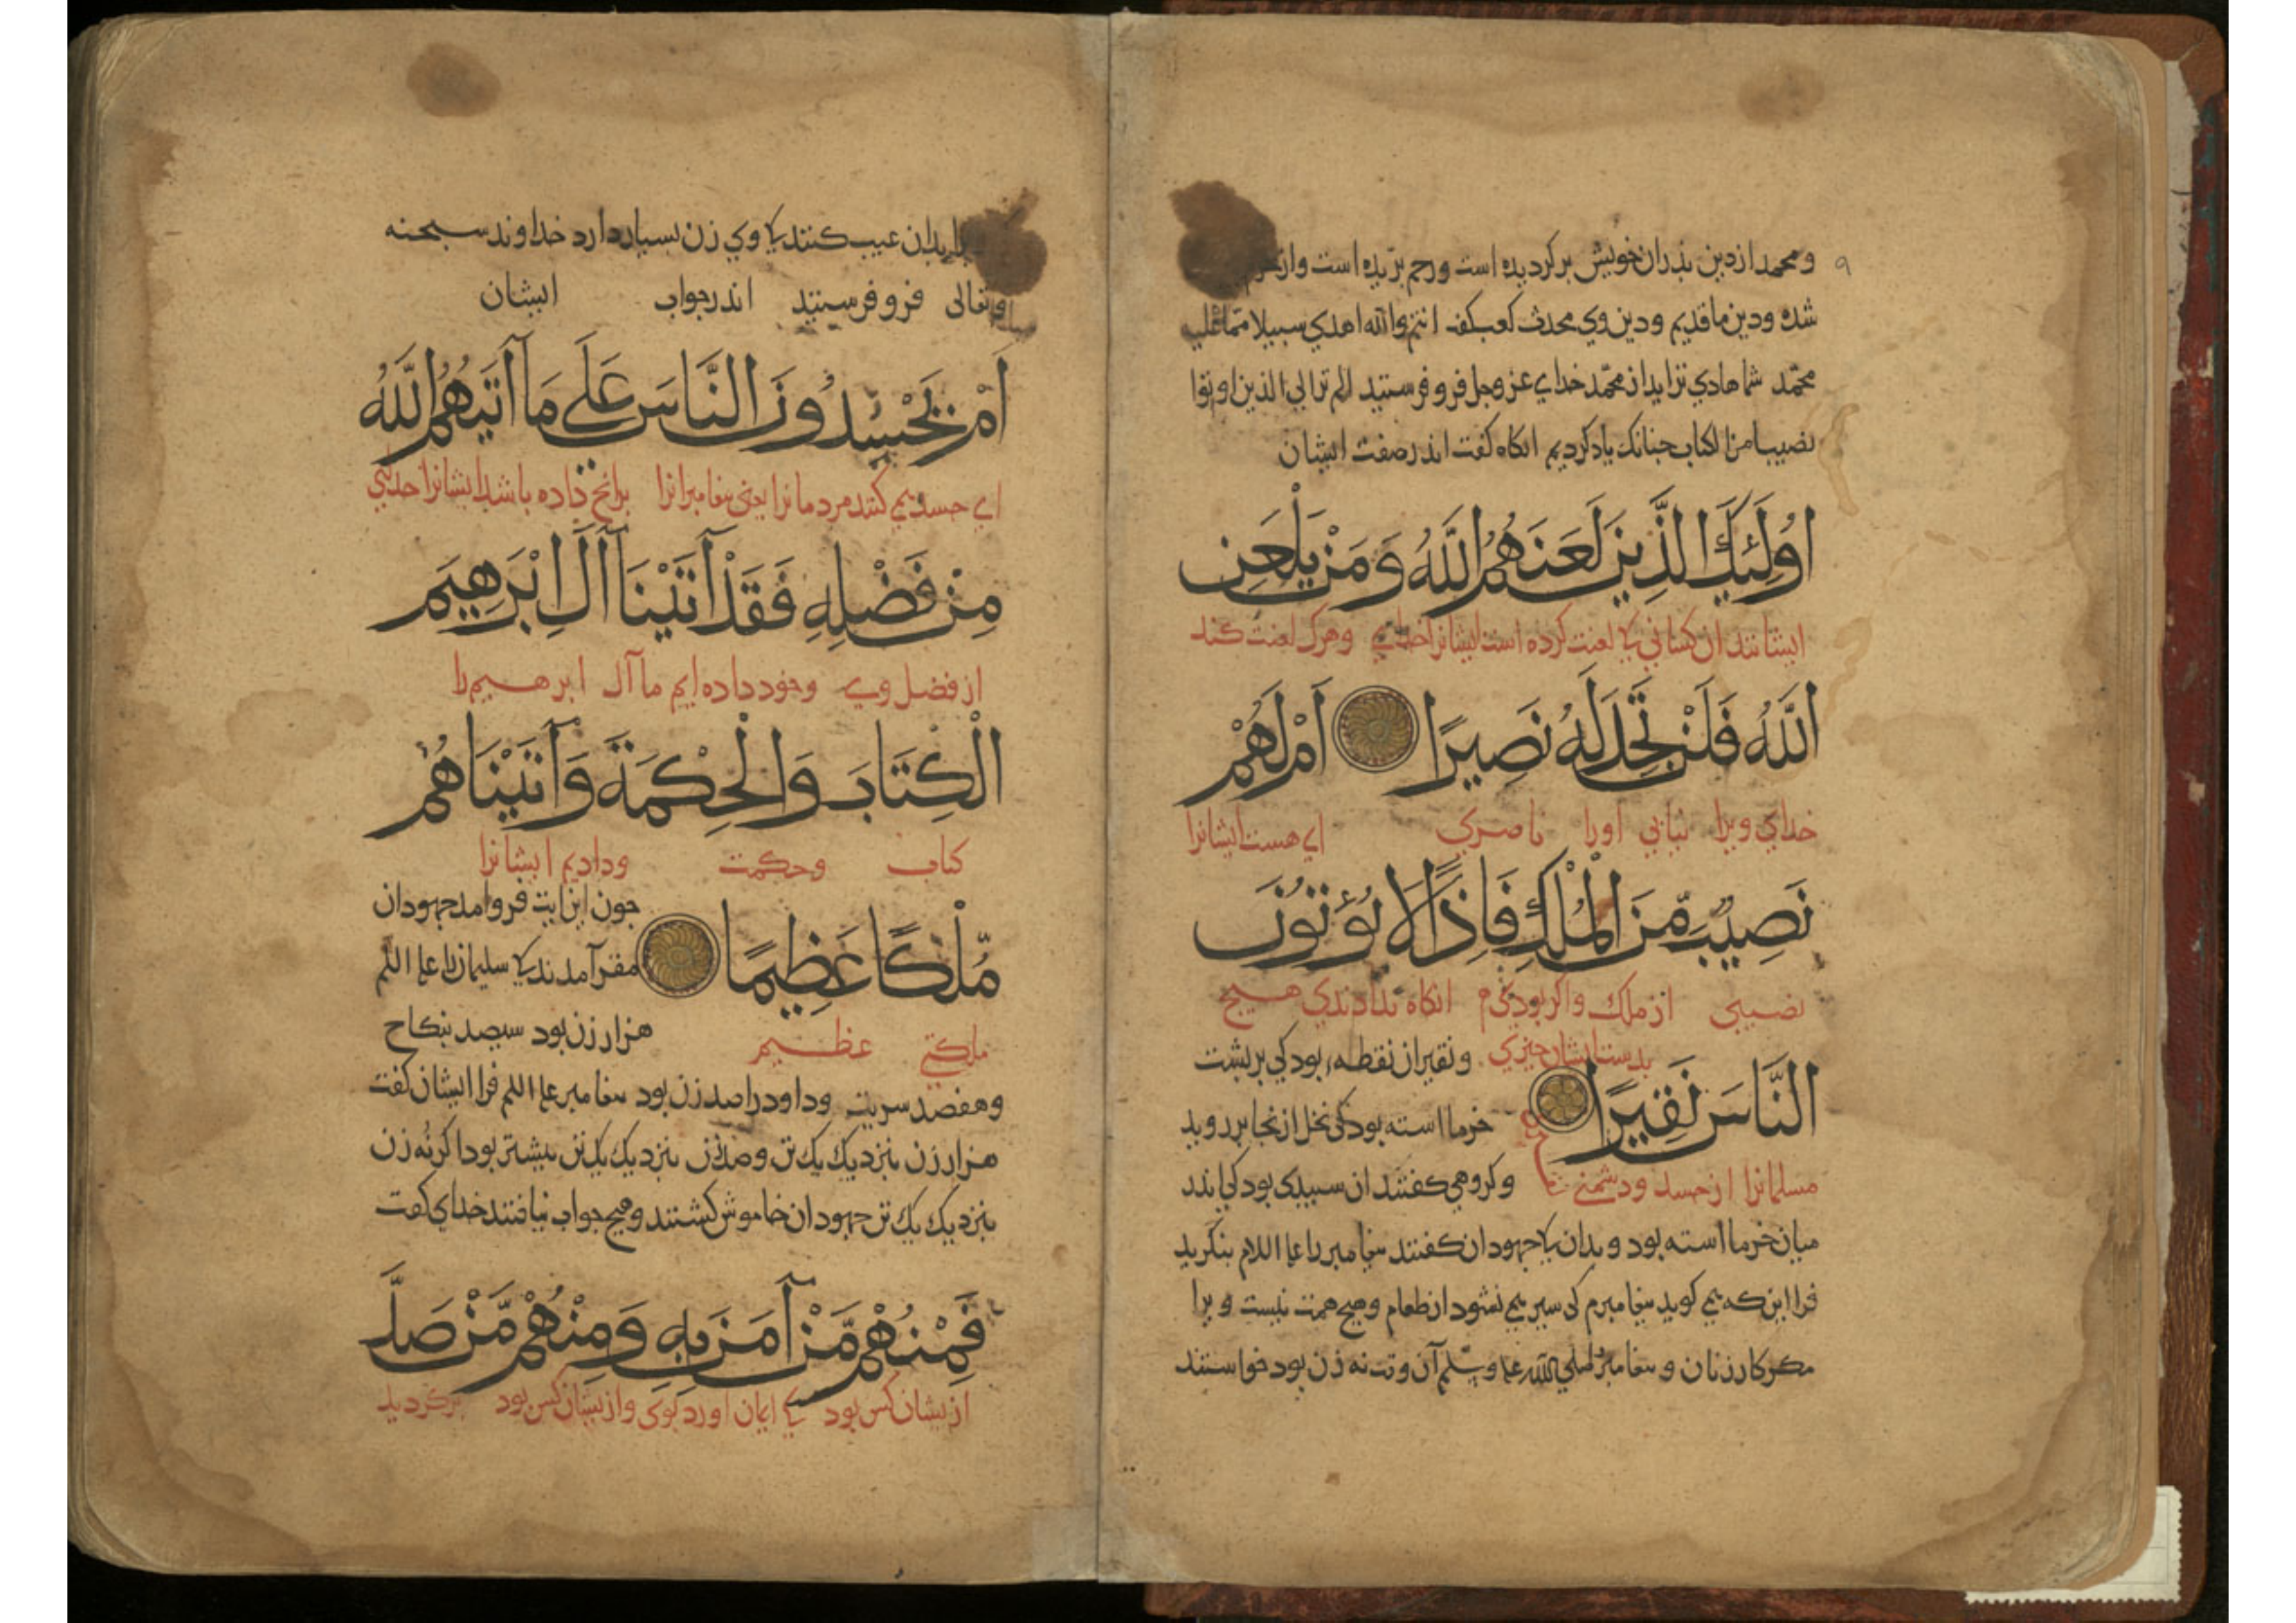 ومحمد از دین پذران خویش برکردیده است ورحم بریده است واز
شده ودین ما قدیم ودین وی محدث کعب کفت انتم والله اهدی سبیلا مما علیه
محمد شما هادی ترایداز محمد خدای عز وجل فرو فرستید الم تر الی الذین اوتوا
نصیبا من الکتاب جنانک یاد کردیم انکاه کفت اندر صفت ایشان
اُولَئِكَ الَّذِينَ لَعَنَهُمُ اللَّهُ وَمَنْ يَلْعَنِ
ایشانند ان کسانی کا لعنت کرده است ایشانرا خدای وهرک لعنت کند
اللَّهُ فَلَنْ تَجِدَ لَهُ نَصِيرًا اَمْ لَهُمْ
خدای ویرا نیابی اورا ناصری ای هست ایشانرا
نَصِيبٌ مِّنَ الْمُلْكِ فَاِذًا لَا يُؤْتُونَ
نصیبی از ملک واکر بودی انکاه ندادندی هیج
بدست ایشان جیزی ونقیر ان نقطه بود کی بر بشت
النَّاسَ نَقِيرًا
خرما استه بود کی نخل ازنجا بر روید
مسلمانرا از حسد ودشمنی وکروهی کفتند ان سبیدی بود کی اندر
میان خرما استه بود وبدان کا جهودان کفتند بیغامبر را علیه السلام بنکرید
فرا این که می کوید بیغامبرم کی سیر می نشود از طعام وهیج همت نیست ویرا
مکر کار زنان وبیغامبر صلی الله علیه وسلم آن وقت نه زن بود خواستند
بدان عیب کنند کا وی زن بسیار دارد خداوند سبحنه
وتعالی فرو فرستید اندر جواب ایشان
اَمْ يَحْسُدُونَ النَّاسَ عَلَى مَا آتَيهُمُ اللَّهُ
ای حسد می کنند مردمانرا یعنی بیغامبرانرا برانج داده باشد ایشانرا خدای
مِنْ فَضْلِهِ فَقَدْ آتَيْنَا آلَ اِبْرَهِيمَ
از فضل وی وخود داده ایم ما آل ابرهیم را
الْكِتَابَ وَالْحِكْمَةَ وَآتَيْنَاهُمْ
کتاب وحکمت ودادیم ایشانرا
جون این ایت فرو امد جهودان
مُّلْكًا عَظِيمًا
مقر آمدند کا سلیمان را علیه السلم
ملکتی عظیم هزار زن بود سیصد بنکاح
وهفصد سریت وداود را صد زن بود بیغامبر علیه السلم فرا ایشان کفت
هزار زن بنزدیک یک تن وصد زن بنزدیک یک تن بیشتر بود اکر نه زن
بنزدیک یک تن جهودان خاموش کشتند وهیج جواب نیافتند خدای کفت
فَمِنْهُمْ مَّنْ آمَنَ بِهِ وَمِنْهُمْ مَّنْ صَدَّ
ازیشان کس بود کی ایمان اورد بوی وازیشان کس بود برکردید